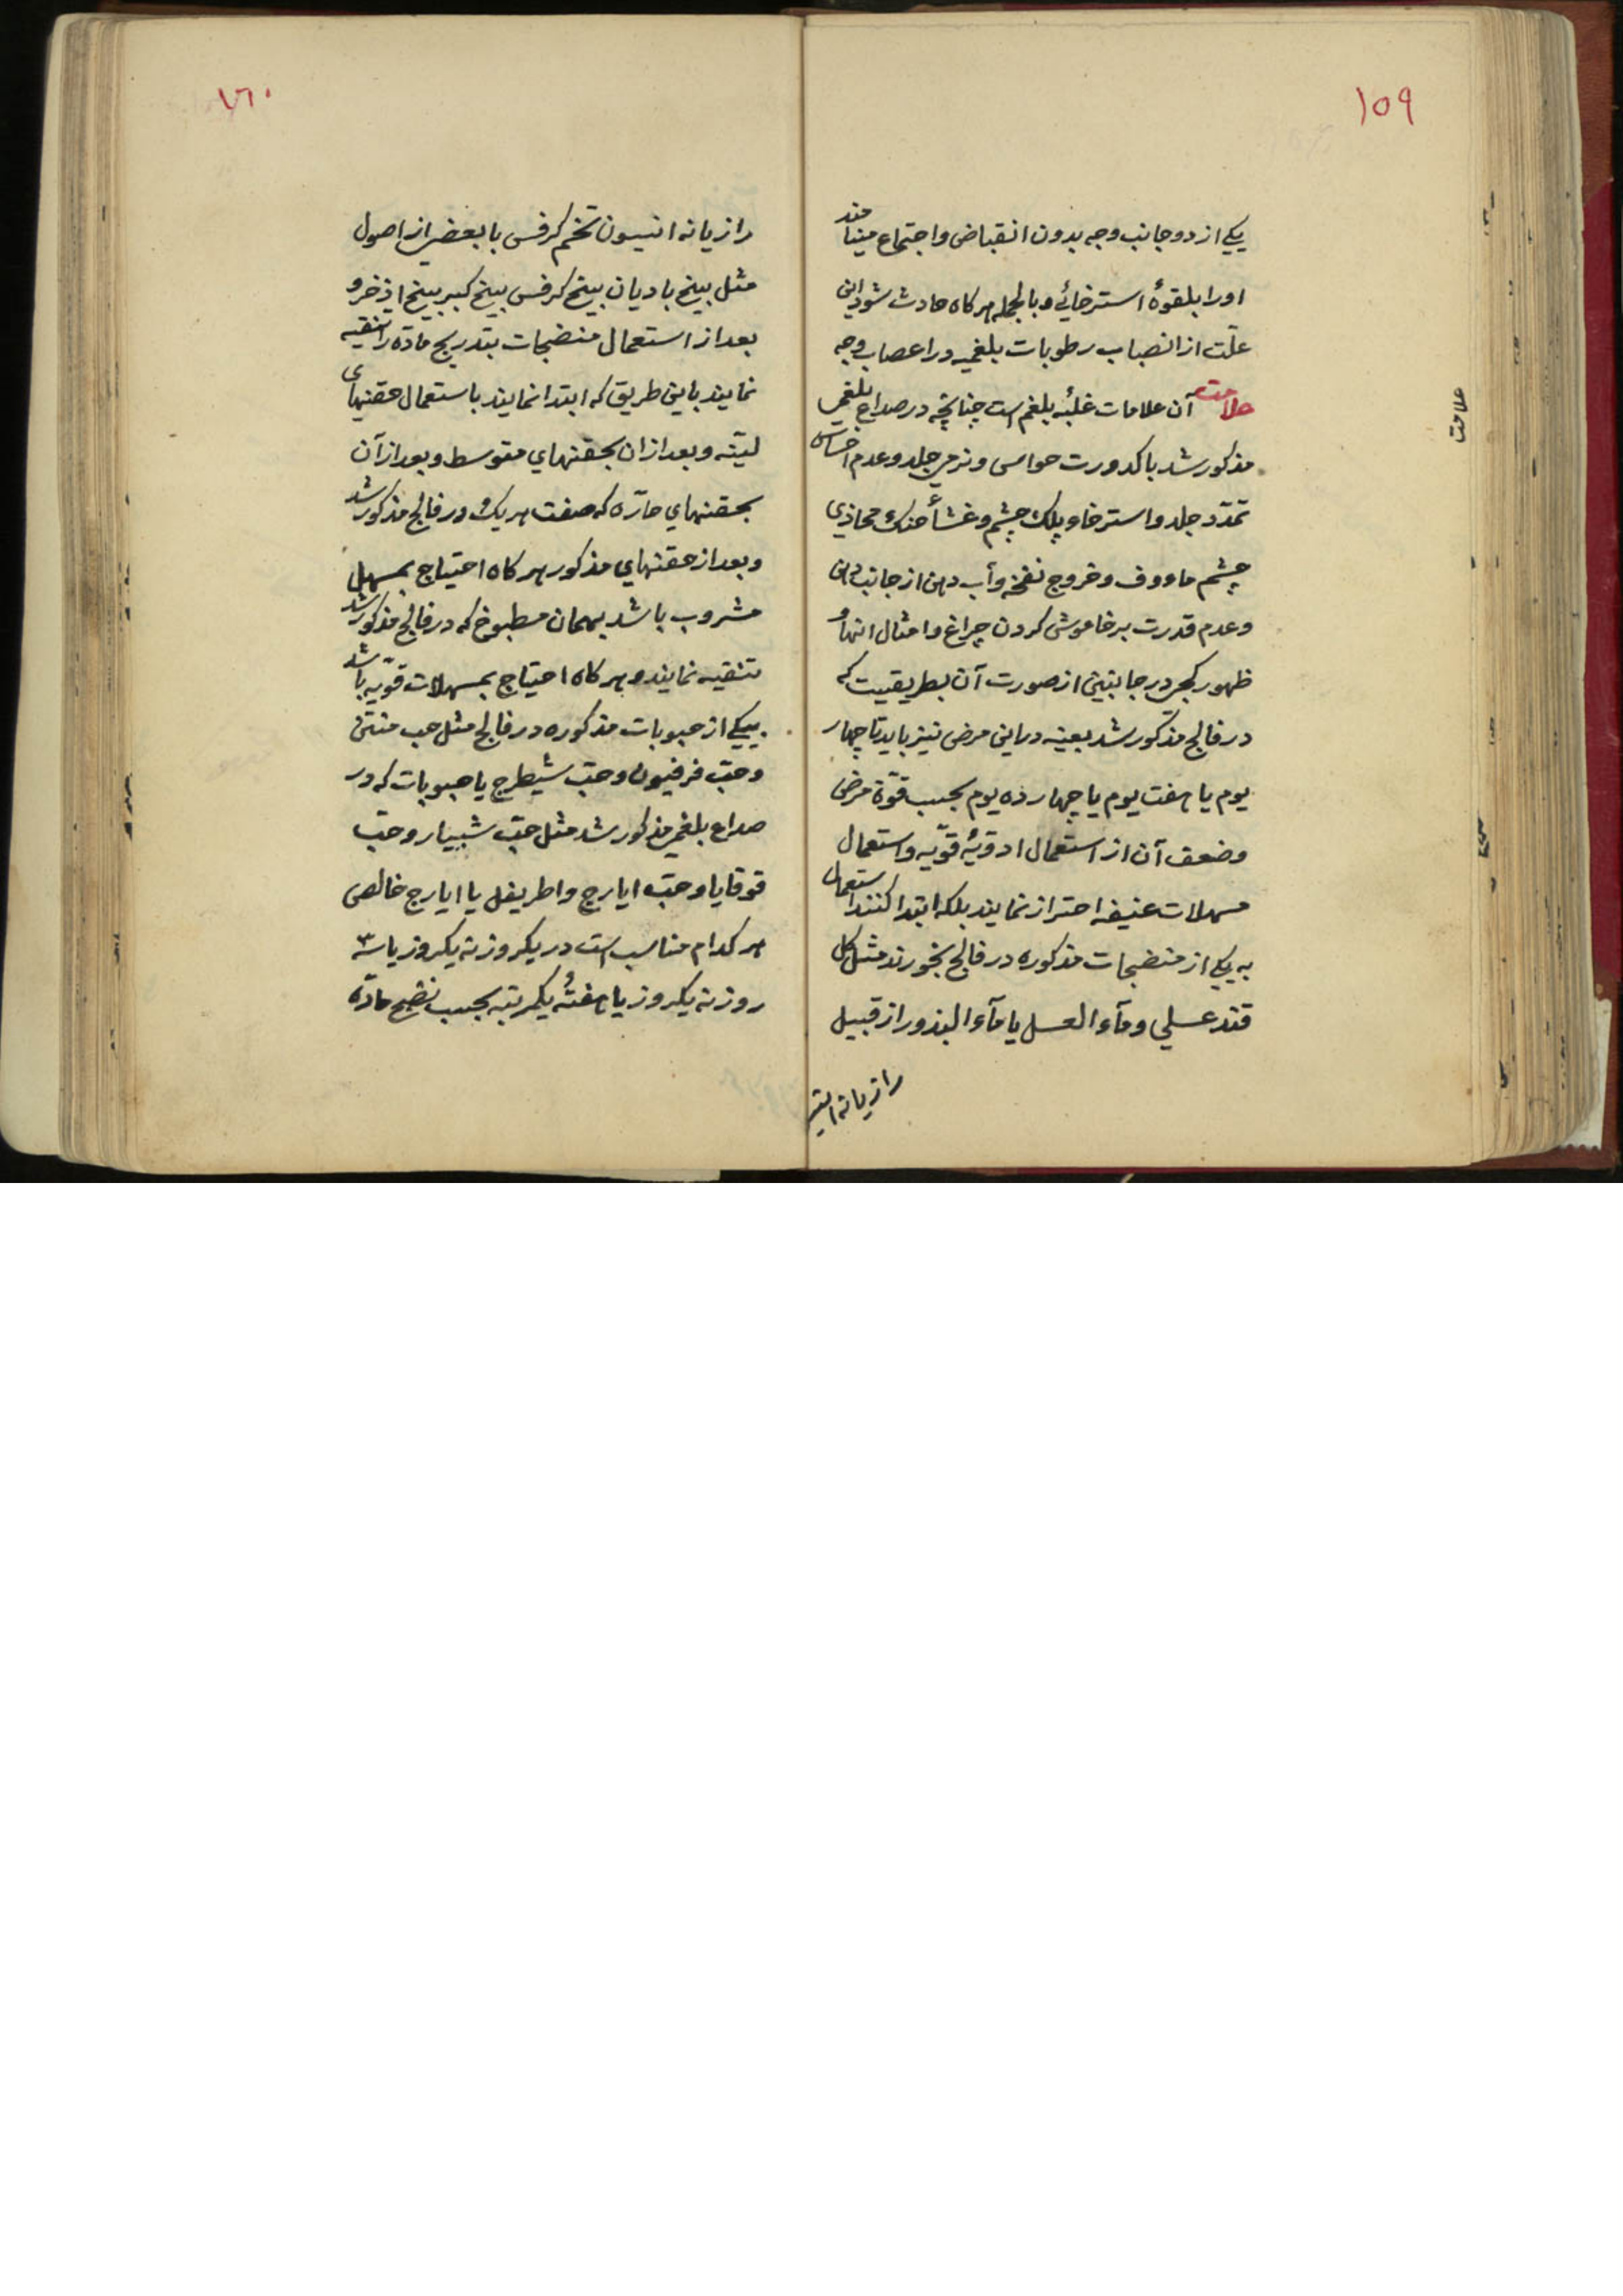 ١٥٩
یکی از دو جانب وجه بدون انقباض و اجتماع مینامند
او را بلقوهٔ استرخائی و بالجمله هرکاه حادث شود این
علّت از انصباب رطوبات بلغمیه در اعصاب وجه
علامت آن علامات غلبهٔ بلغم است چنانچه در صداع بلغمی
مذکور شد با کدورت حواس و نرمی جلد و عدم احساس
تمدّد جلد و استرخاء پلک چشم و غشأ حنک محاذی
چشم ماءووف و خروج نفخه و آب دهن از جانب دهن
و عدم قدرت بر خاموش کردن چراغ و امثال انها و
ظهور کجی در جانبین از صورت آن بطریقیست که
در فالج مذکور شد بعینه در این مرض نیز باید تا چهار
یوم یا هفت یوم یا چهارده یوم بحسب قوّة مرض
وضعف آن از استعمال ادویهٔ قویّه و استعمال
مسهلات عنیفه احتراز نمایند بلکه ابتدا کنند استعمال
به یکی از منضجات مذکوره در فالج بخورند مثل کل
قند عسلی و مآء العسل یا مآء البذور از قبیل
رازیانه انیسو
علامت
١٦٠
رازیانه انیسون تخم کرفس با بعضی از اصول
مثل بیخ بادیان بیخ کرفس بیخ کبر بیخ اذخر و
بعد از استعمال منضجات بتدریج مادّه را تنقیه
نمایند باین طریق که ابتدا نمایند باستعمال حقنهای
لیّنه و بعد از ان بحقنهای متوسط و بعد از آن
بحقنهای حارّه که صفت هریک در فالج مذکور شد
و بعد از حقنهای مذکور هرکاه احتیاج بمسهل
مشروب باشد بهمان مطبوخ که در فالج مذکور شد
تنقیه نمایند و هرکاه احتیاج بمسهلات قویّه باشد
بیکی از حبوبات مذکوره در فالج مثل حب منتن
و حبّ فرفیون و حبّ شیطرج یا حبوبات که در
صداع بلغمی مذکور شد مثل حبّ شبیار و حبّ
قوقایا و حبّ ایارج و اطریفل یا ایارج خالص
هر کدام مناسب است در یکروز نه یکروز یا سه
روز نه یکروز یا هفتهٔ یکمرتبه بحسب نضج مادّه